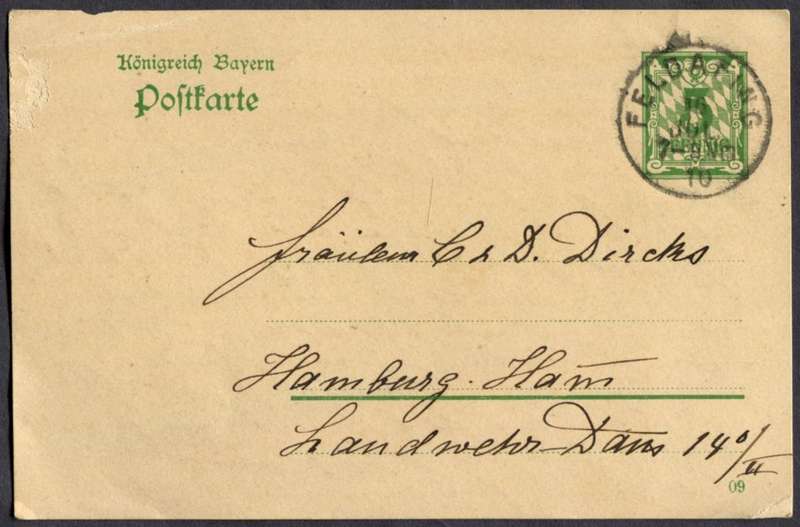 Königreich Bayern
Postkarte
FELDAFING
15
JUL
7-8 Nm
10
5
PFENNIG
Fräulein C u D. Dircks
Hamburg. Ham̅
Landwehr-Dam̅ 140/II
09